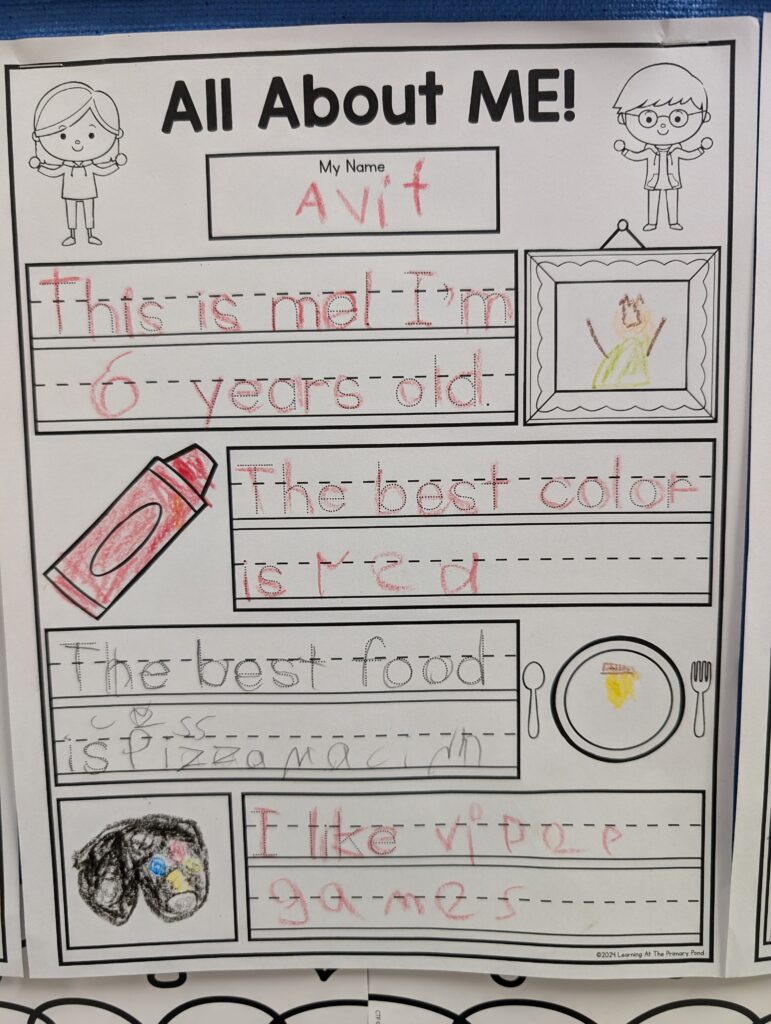 All About ME!
My Name
AVit
This is me! I'm
6 years old.
The best color
is red
The best food
is Pizza
I like
games
©2024 Learning At The Primary Pond